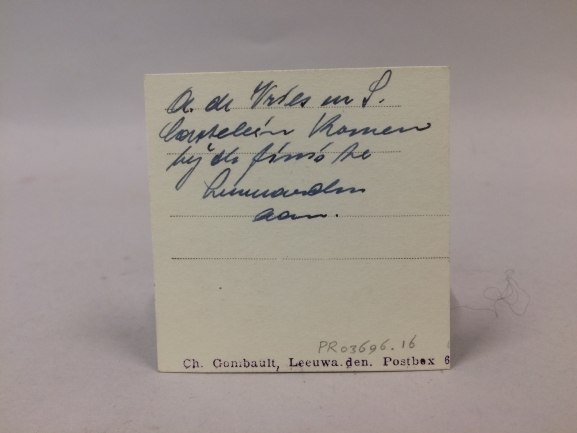 A. de Vries en S.
Castelein komen
bij de finish te
Leeuwarden
aan.
PR03696.16
Ch. Gombault, Leeuwa.den. Postbox 6